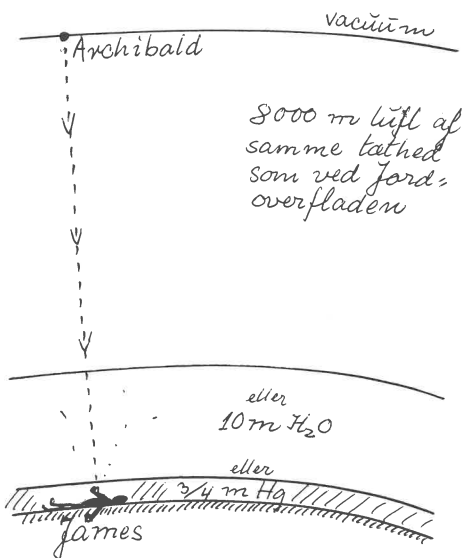 vacuum
Archibald
8000 m luft af
samme tæthed
som ved Jord=
overfladen
eller
10 m H₂O
eller
3/4 m Hg
James